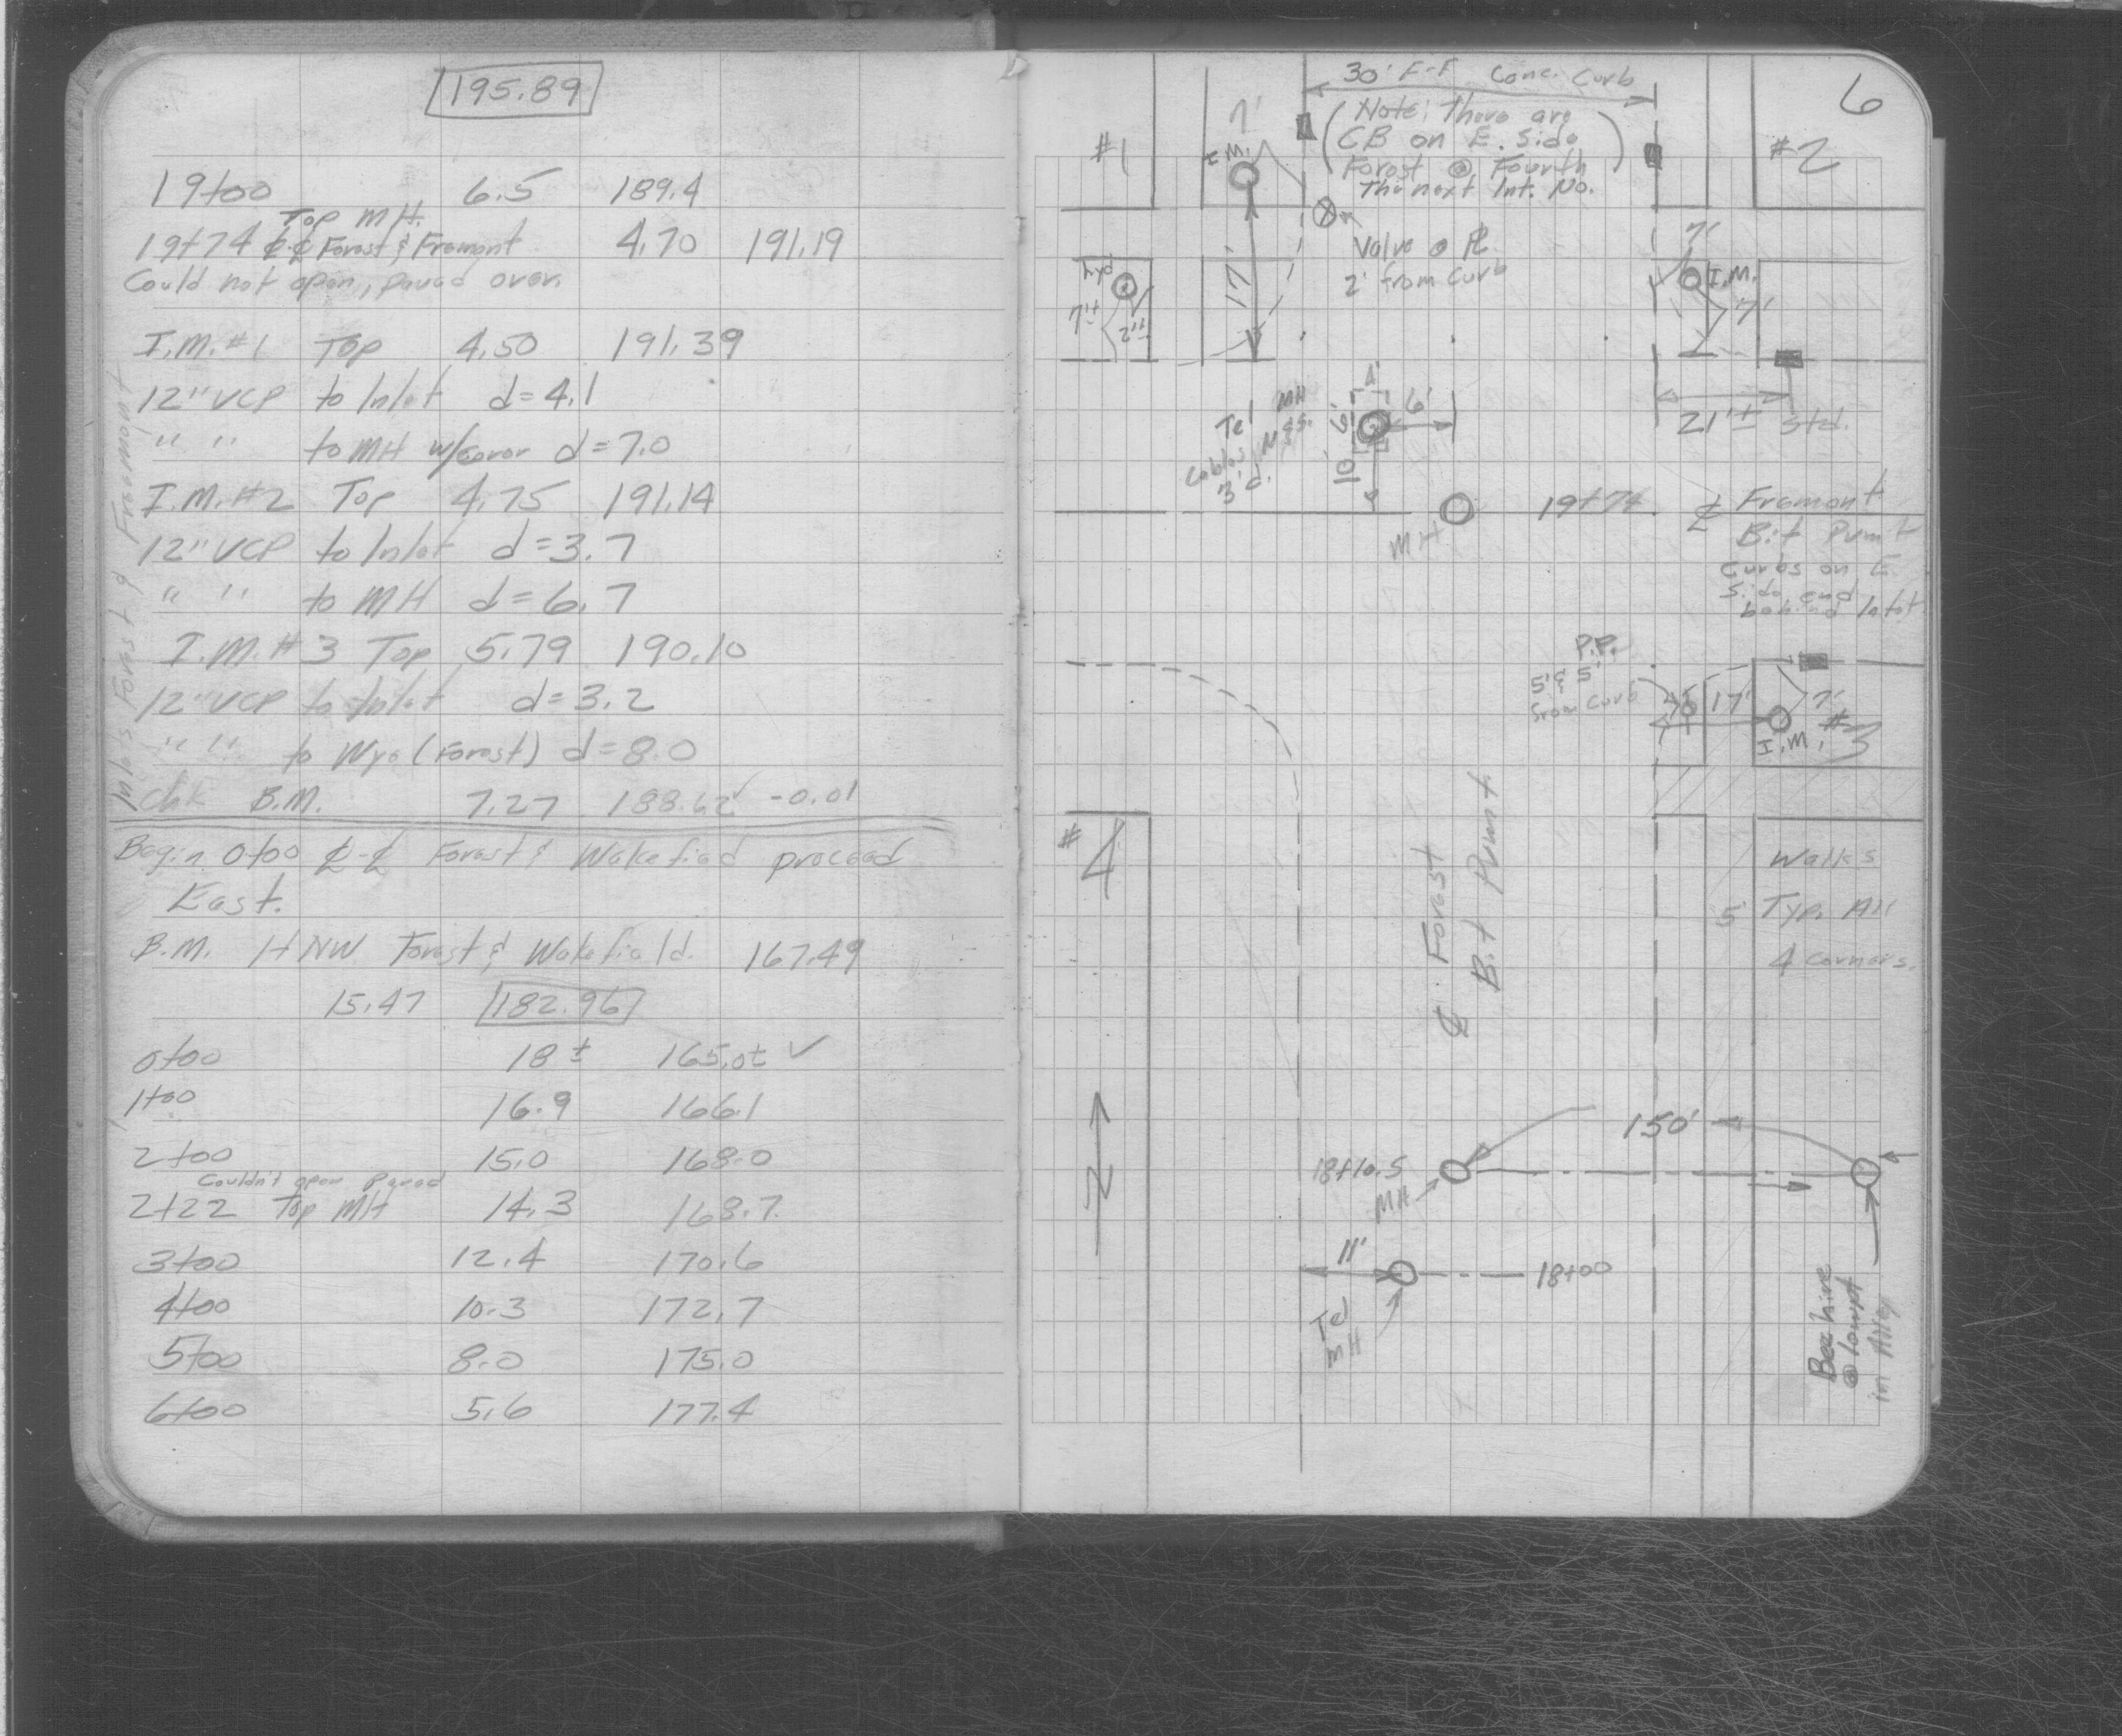 195.89
19+00 6.5 189.4
Top MH.
19+74 ℄-℄ Forest & Fremont 4.70 191.19
Could not open, paved over.
I.M.#1 Top 4.50 191.39
12"VCP to Inlet d=4.1
" " to MH w/cover d=7.0
I.M.#2 Top 4.75 191.14
12"VCP to Inlet d=3.7
" " to MH d=6.7
I.M.#3 Top 5.79 190.10
12"VCP to Inlet d=3.2
" " to Wye (Forest) d=8.0
Chk B.M. 7.27 188.62✓ -0.01
Inlets Forest & Freemont
Begin 0+00 ℄-℄ Forest & Wakefied proceed
East.
B.M. H NW Forest & Wakefield. 167.49
15.47 182.96
0+00 18± 165.0± ✓
1+00 16.9 166.1
2+00 15.0 168.0
Couldn't open Paved
2+22 Top MH 14.3 168.7
3+00 12.4 170.6
4+00 10.3 172.7
5+00 8.0 175.0
6+00 5.6 177.4
6
30' F-F Conc. Curb
(Note: There are
CB on E. Side
Forest @ Fourth
The next Int. No.)
#1
7'
I.M.
#2
Valve @ ℄
2' from Curb
Hyd
7'±
2'±
17'
7'
I.M.
7'
4'
6'
Tel MH
Cables
3'd.
10'
21'± Std.
MH
19+74 ℄ Fremont
Bit Pvmt
Curbs on E.
Side and
behind Inlet.
P.P.
5' & 5'
from Curb
17'
7'
#3
I.M.
#4
℄ Forest
Bit Pvmt
Walks
5' Typ. All
4 corners.
N
150'
18+10.5
MH
11'
18+00
Tel
MH
Beehive
@ Lowpt
in Alley